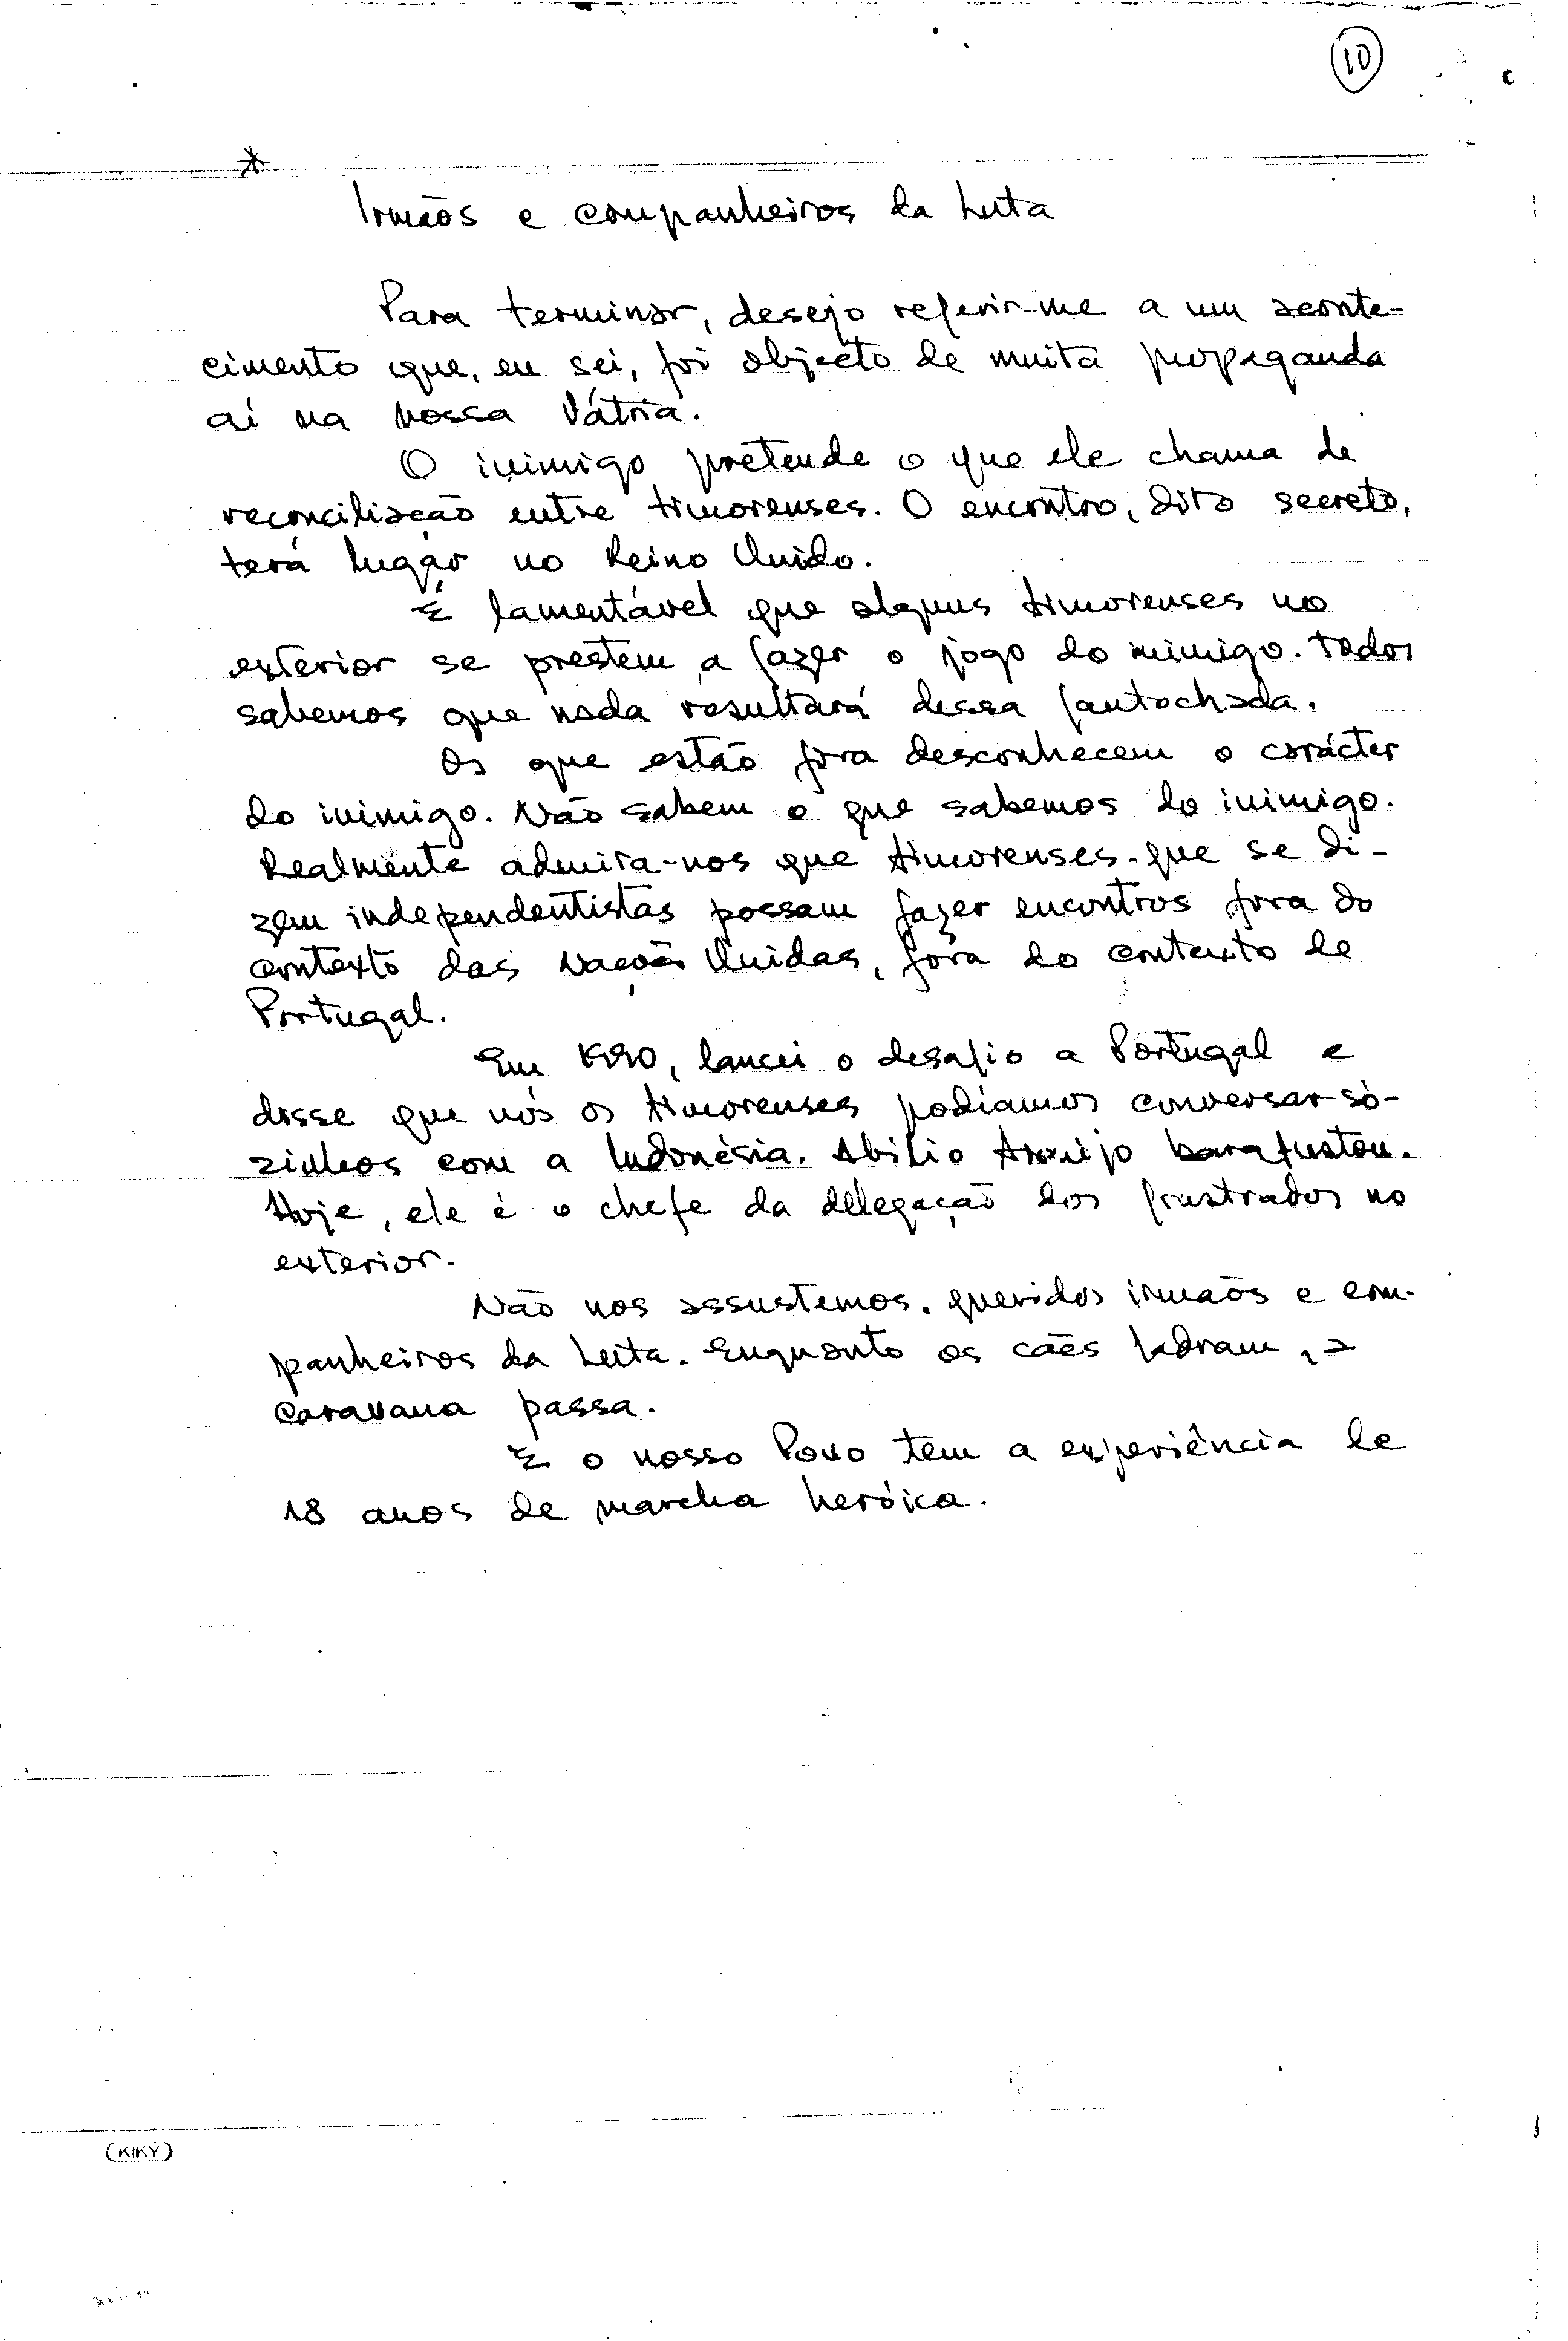 10
Irmãos e companheiros da Luta
Para terminar, desejo referir-me a um aconte-
cimento que, eu sei, foi objecto de muita propaganda
aí na nossa Pátria.
O inimigo pretende o que ele chama de
reconciliação entre timorenses. O encontro, dito secreto,
terá lugar no Reino Unido.
É lamentável que alguns timorenses no
exterior se prestem a fazer o jogo do inimigo. Todos
sabemos que nada resultará dessa fantochada.
Os que estão fora desconhecem o carácter
do inimigo. Não sabem o que sabemos do inimigo.
Realmente admira-nos que timorenses que se di-
zem independentistas possam fazer encontros fora do
contexto das Nações Unidas, fora do contexto de
Portugal.
Em 1990, lancei o desafio a Portugal e
disse que nós os timorenses podíamos conversar sò-
zinhos com a Indonésia. Abílio Araújo barafustou.
Hoje, ele é o chefe da delegação dos frustrados no
exterior.
Não nos assustemos, queridos irmãos e com-
panheiros da Luta. Enquanto os cães ladram, a
caravana passa.
E o nosso Povo tem a experiência de
18 anos de marcha heróica.
(KIKY)